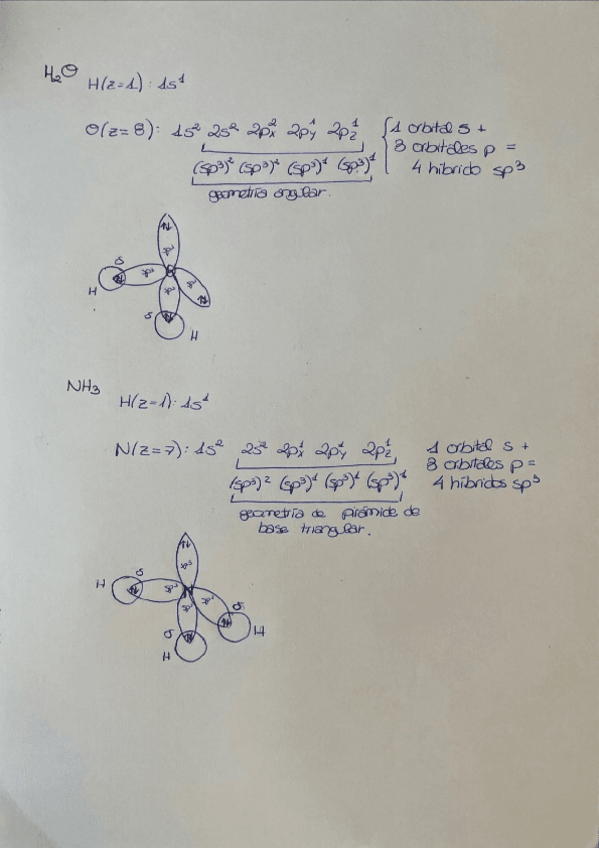 H₂O
H(z=1): 1s¹
O(z=8): 1s² 2s² 2pₓ² 2pᵧ¹ 2p_z¹ { 1 orbital s +
3 orbitales p =
4 híbrido sp³
(sp³)² (sp³)² (sp³)¹ (sp³)¹
geometría angular.
S
sp³
O
sp³
sp³
sp³
H
S
H
NH₃
H(z=1): 1s¹
N(z=7): 1s² 2s² 2pₓ¹ 2pᵧ¹ 2p_z¹ 1 orbital s +
3 orbitales p =
4 híbridos sp³
(sp³)² (sp³)¹ (sp³)¹ (sp³)¹
geometría de pirámide de
base triangular.
sp³
H
S
sp³
N
sp³
sp³
S
H
S
H